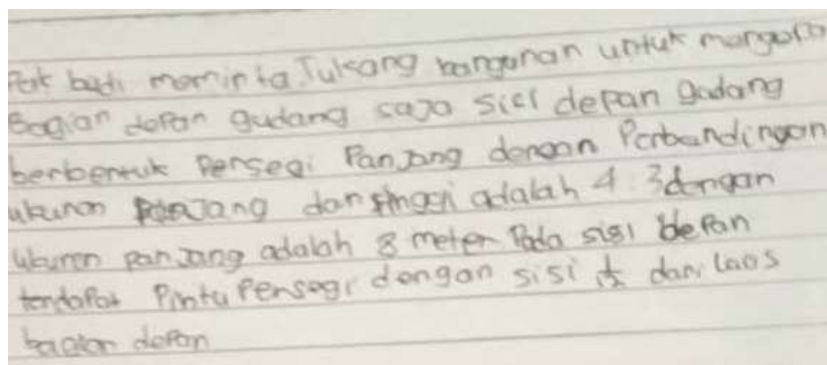 Pak budi meminta Tukang bangunan untuk
Bagian depan gudang saja sisi depan gudang
berbentuk Persegi Panjang dengan Perbandingan
ukuran panjang dan tinggi adalah 4 : 3 dengan
Ukuran panjang adalah 8 meter Pada sisi depan
terdapat Pintu Persegi dengan sisi dari Luas
bagian depan